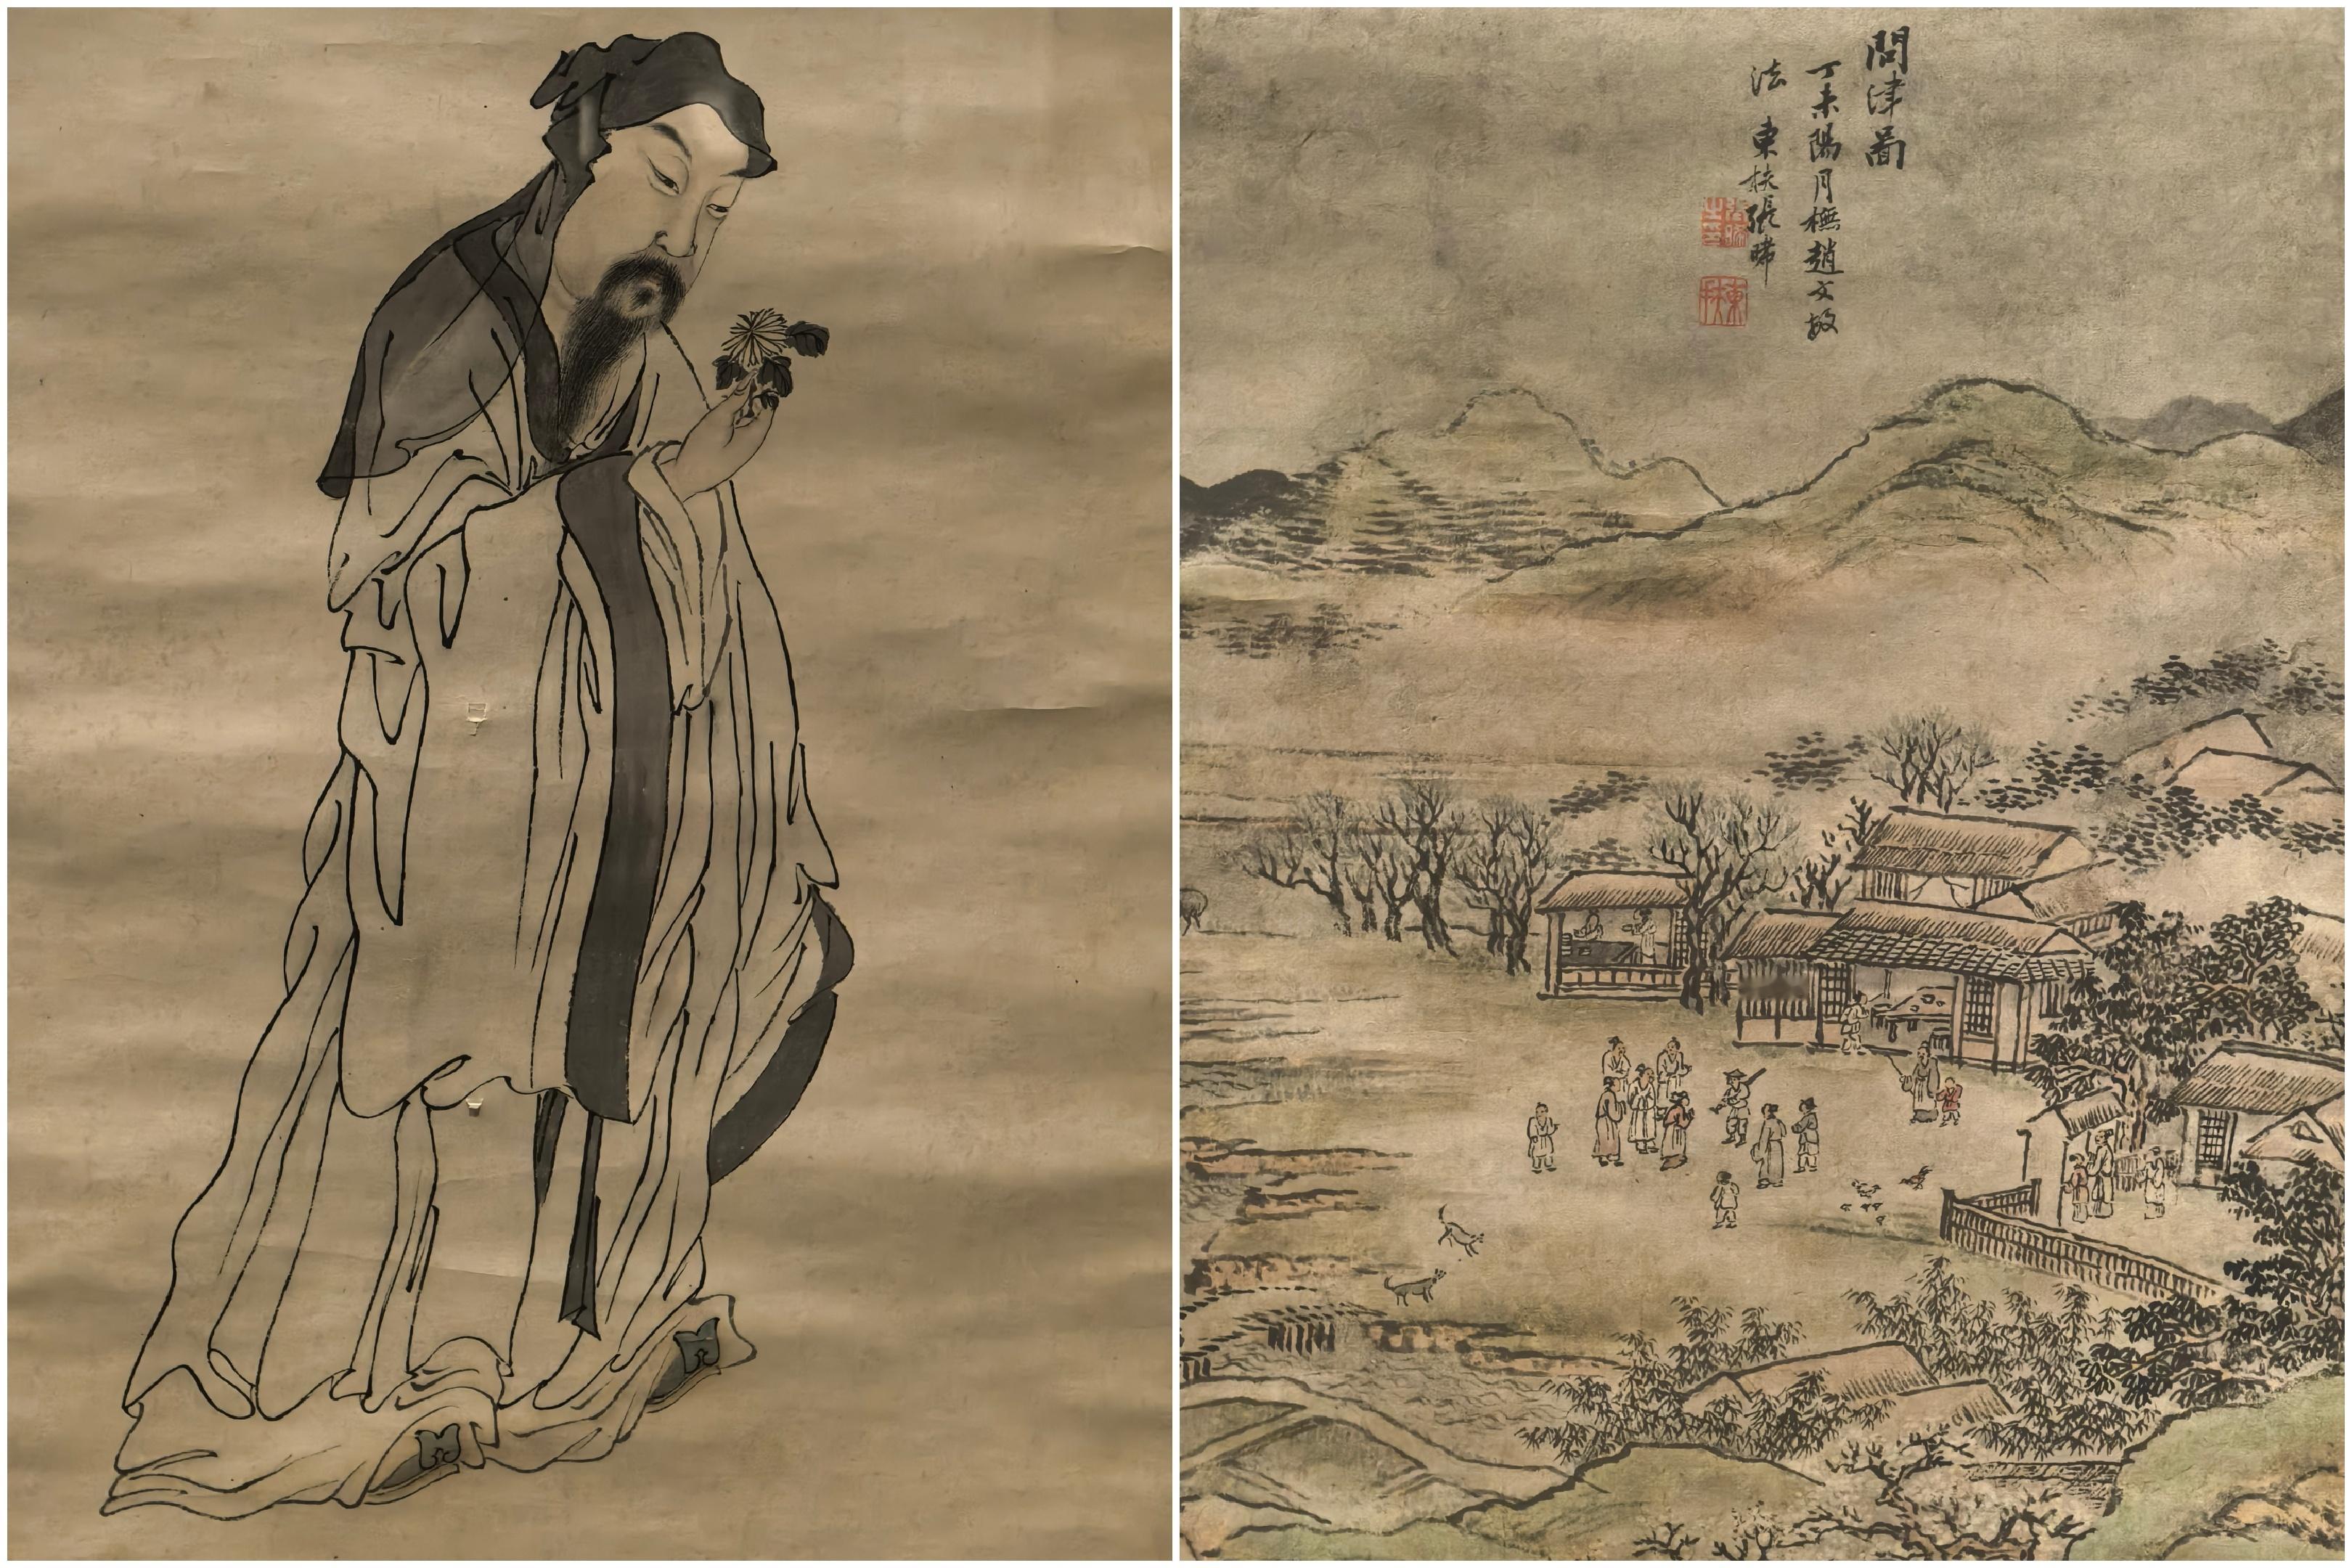 問津圖
丁未陽月橅趙文敏
法 東扶張晞
東扶